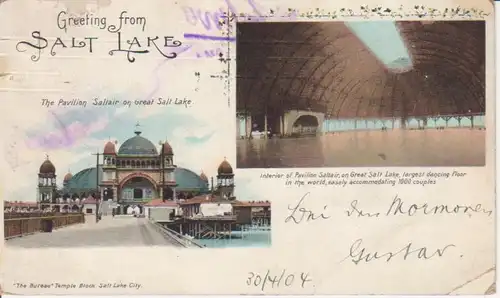 Greeting from
SALT LAKE
The Pavilion Saltair on Great Salt Lake
Interior of Pavilion Saltair, on Great Salt Lake, largest dancing floor
in the world, easely accommodating 1000 couples
Bei den Mormonen
Gustav.
30/4/04
"The Bureau" Temple Block Salt Lake City.